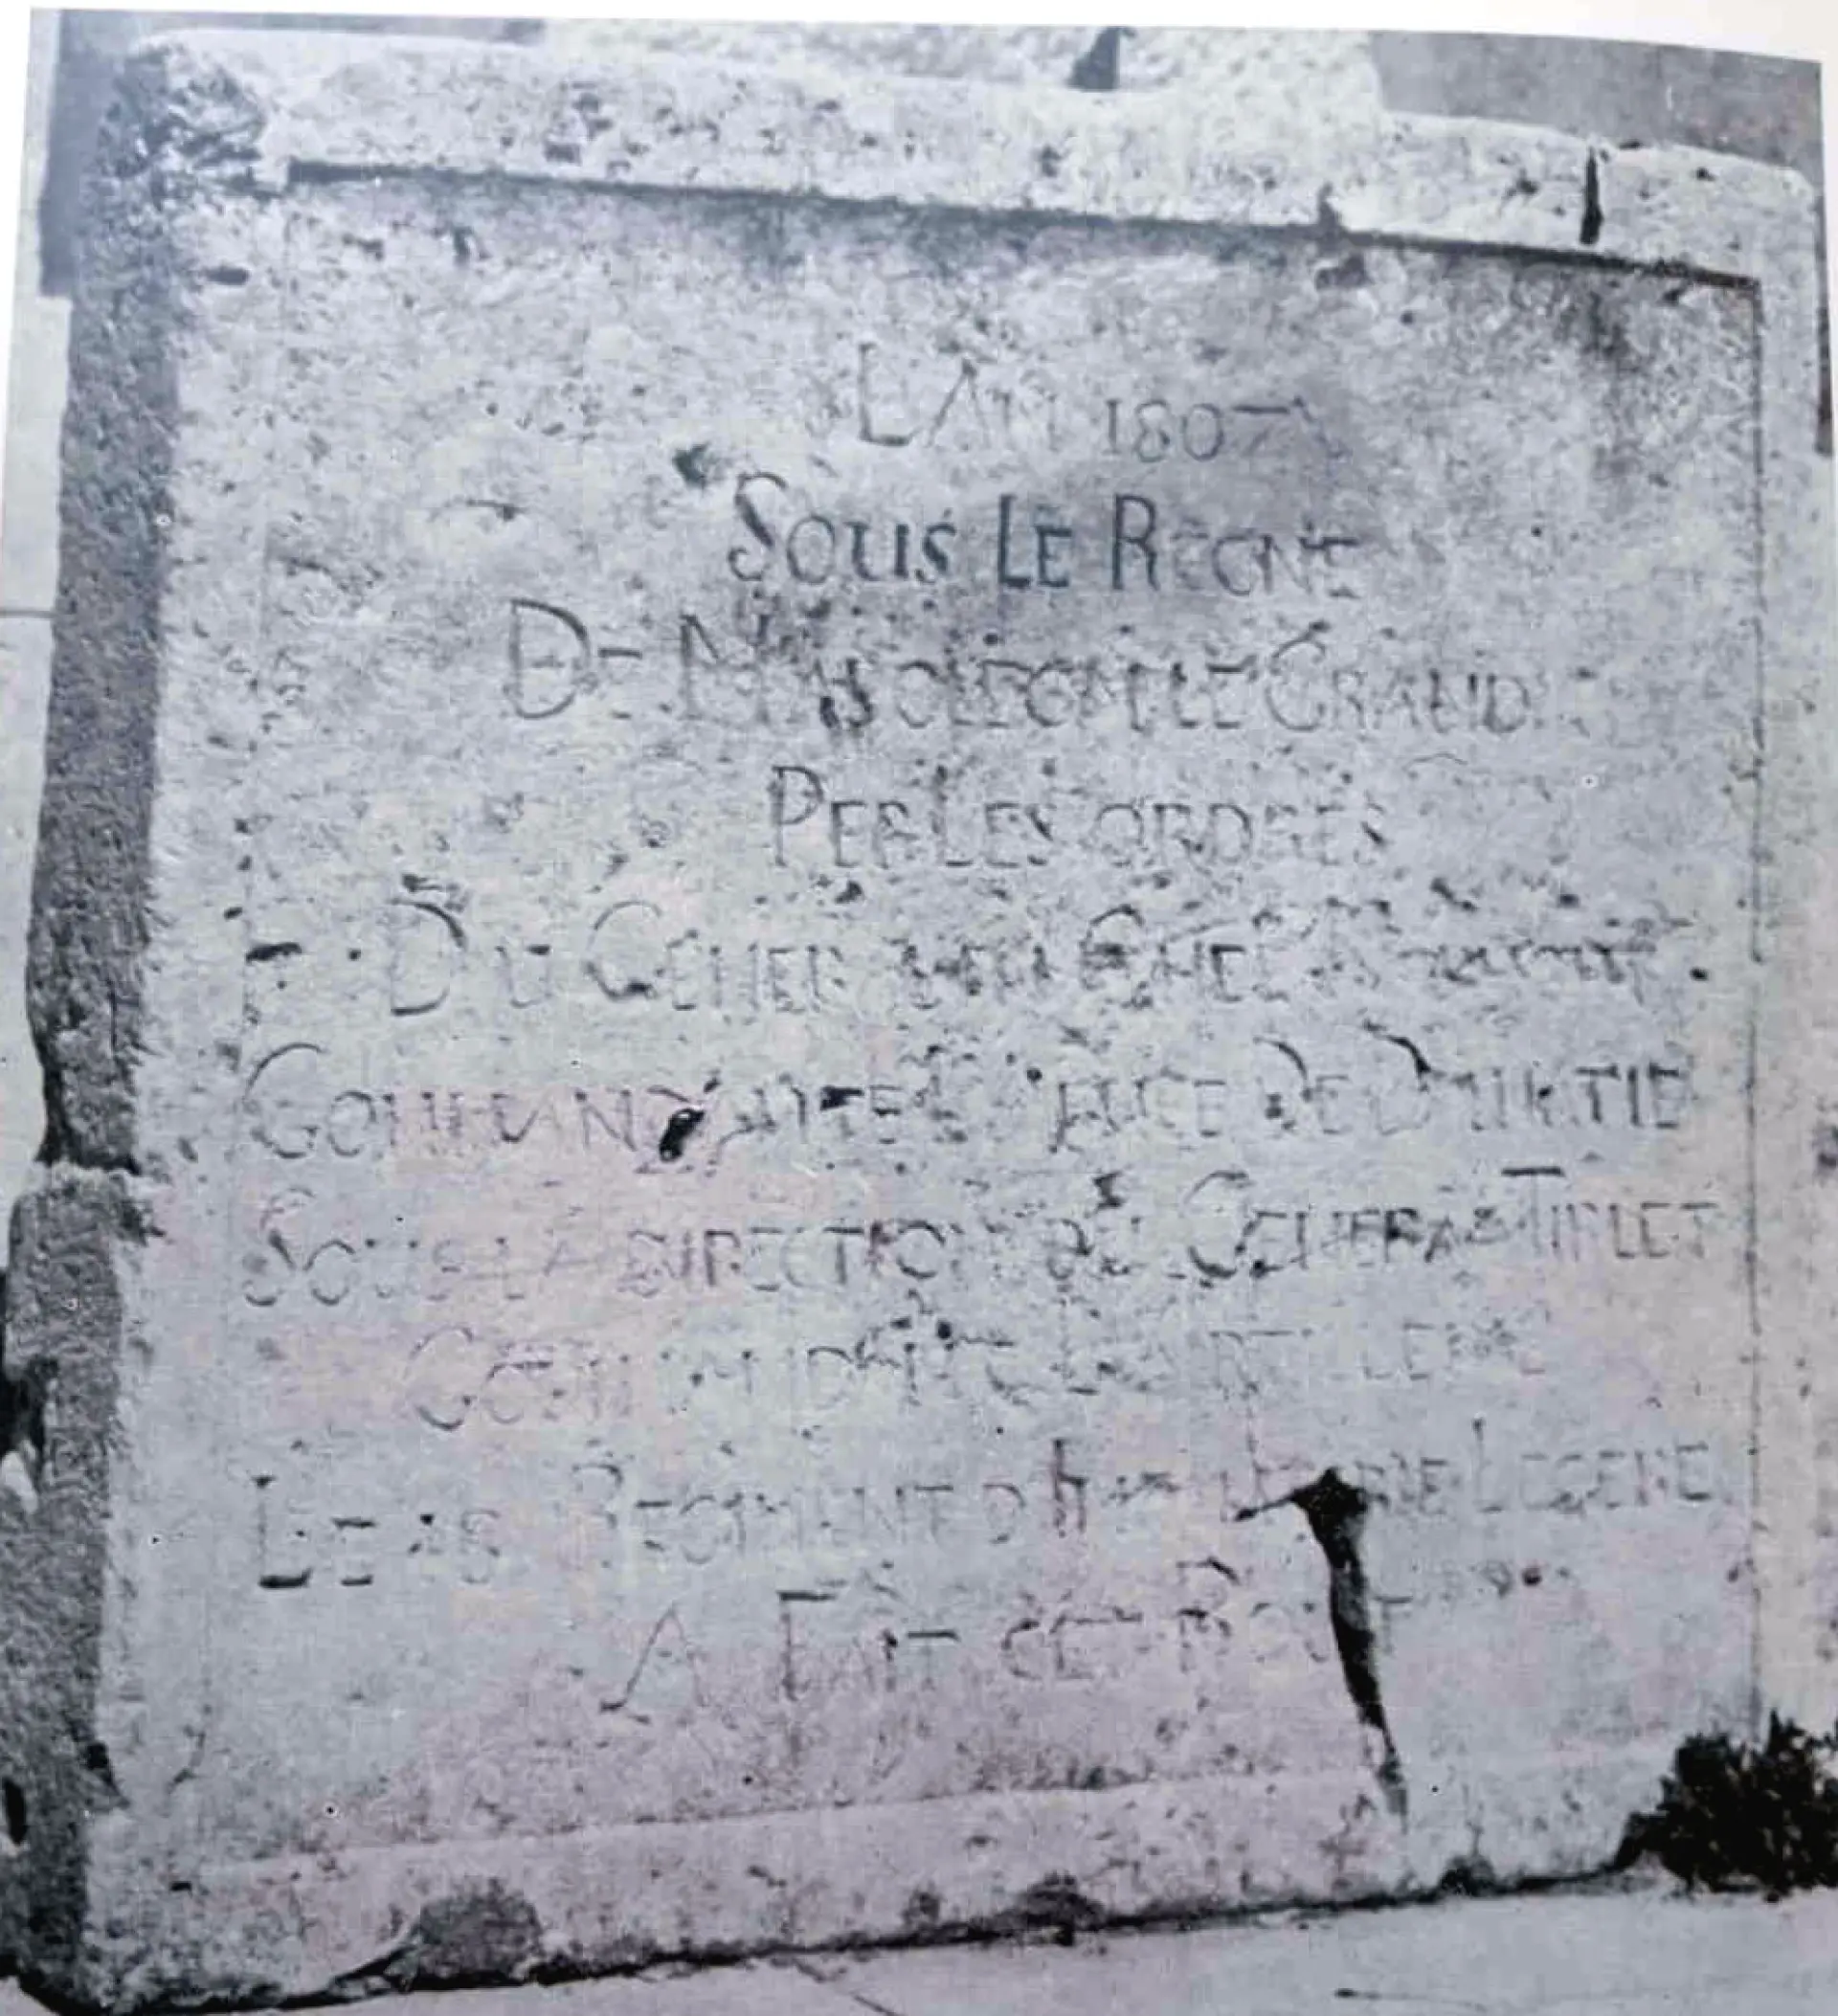 L'AN 1807
SOUS LE REGNE
DE NAPOLEON LE GRAND
PER LES ORDRES
DU GENER EN CHEF
COMMANDANT DE DALMATIE
SOUS LA DIRECTION DU GENERAL TIRLET
COMMANDANT L'ARTILLERIE
LE REGIMENT D'INFANTERIE LEGERE
A FAIT CET